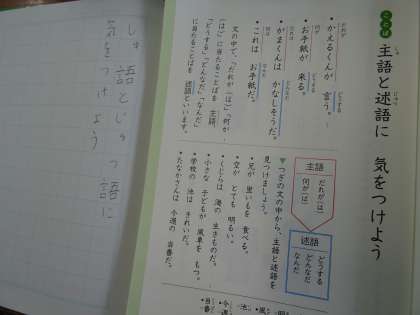 ことば
主語と述語に 気をつけよう
しゅ
じゅつ
だれが
どうする
・かえるくんが 言う。
何が
どうする
・お手紙が 来る。
だれは
どんなだ
・がまくんは かなしそうだ。
何は
なんだ
・これは お手紙だ。
文の中で、「だれが(は)」「何が
(は)」に当たることばを 主語、
「どうする」「どんなだ」「なんだ」
に当たることばを 述語といいます。
主語
だれが(は)
何が(は)
述語
どうする
どんなだ
なんだ
つぎの文の中から、主語と述語を
見つけましょう。
・兄が 重いもを 食べる。
・空が とても 明るい。
・くじらは 海の 生きものだ。
・小さな 子どもが 風車を もつ。
・学校の 池は きれいだ。
・たなかさんは 今週の 当番だ。
しゅ語とじゅつ語に
気をつけよう